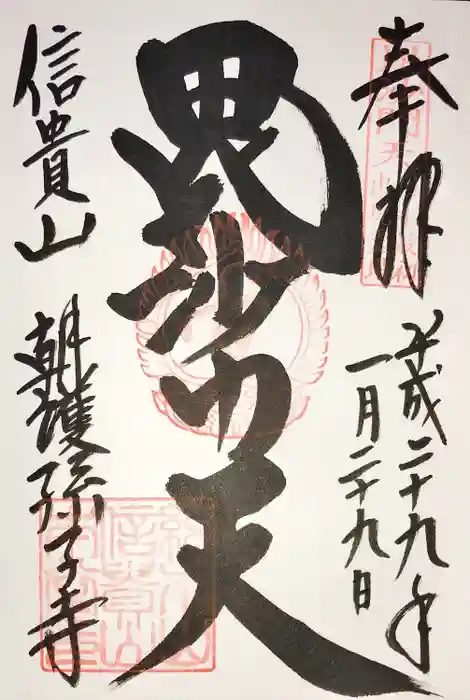 奉拝
平成二十九年
一月二十九日
毘沙門天
信貴山
朝護孫子寺